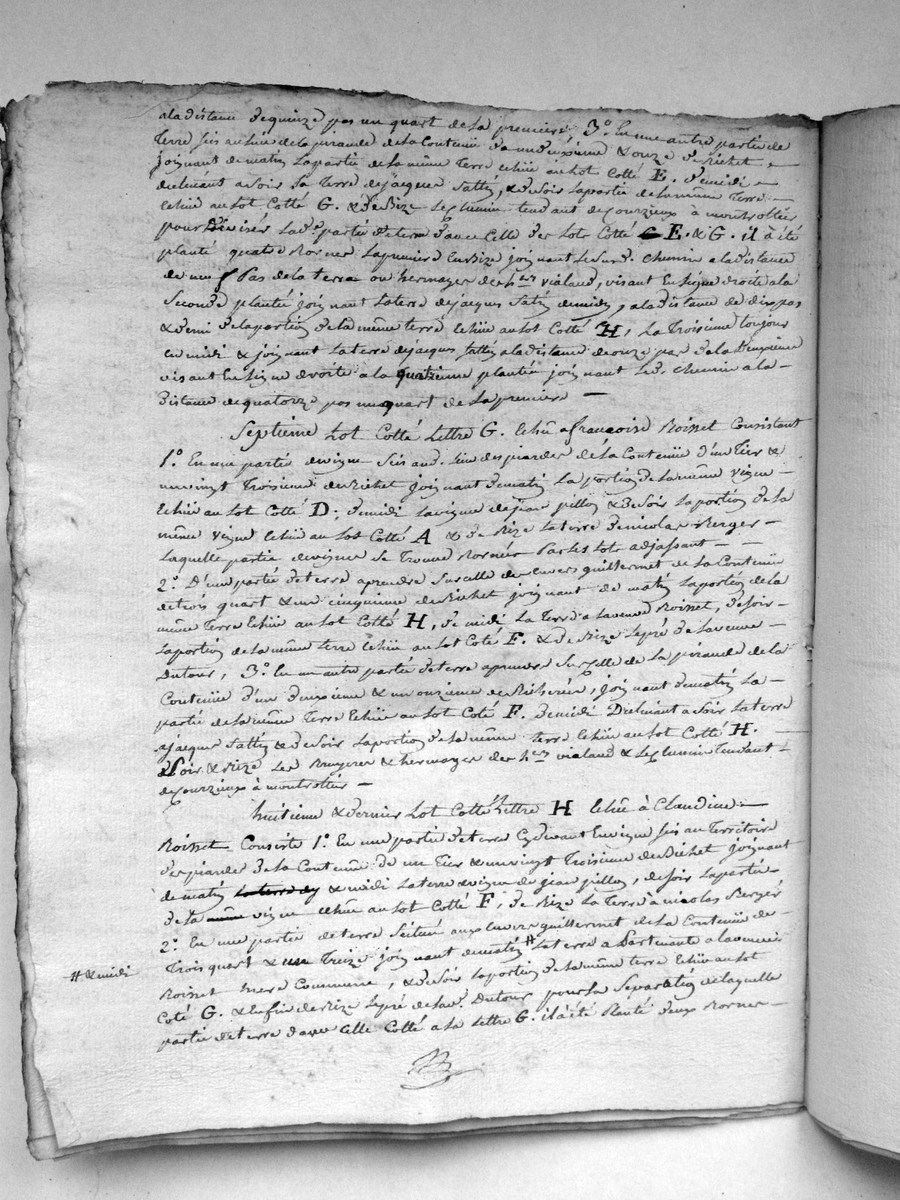 a la distance de quinze pas un quart de la premiere, 3.º En une autre partie de
Terre sis au lieu de la piraude de la Contenüe d'un deuxième & onze de Bichet
joignant de matin la partie de la même Terre échüe au Lot Cotté E. de midi
declinant a soir la Terre de jacques Satty, & de soir la portie de la même Terre
Echüe au Lot Cotté G. & de Bize Le Chemin tendant de Courzieux à montrottier
pour Diviser La d.e partie de terre d'avec Celle des Lots Cotté E. & G. il a été
planté quatre Bornes La premiere En Bize joignant Le susd. Chemin a la distance
de un pas de la terre ou hermages des h.ers vialaud, visant En ligne droite a la
Seconde plantée joignant La terre de jacques Satty de midy, a la distance de dix pas
& demi de la portion de la même terre Echüe au Lot Cotté H, La Troisieme toujour
en midi & joignant La terre de jacques Satty a la distance de onze pas de la Deuxieme
visant En Ligne droite a la quatrieme plantée joignant Le d. Chemin a la
distance de quatorze pas un quart de La premiere
Septieme Lot Cotté Lettre G. Echüe a francoise Roisset Consistant
1.º En une partie de vigne Sis au d. Lieu des piardes de la Contenüe d'un Tier &
un vingt Troisieme de Bichet joignant de matin La portion de la même vigne
Echüe au Lot Cotté D, de midi La vigne de jean pillon & de soir La portion de la
même vigne Echüe au Lot Cotté A & de Bize La terre de nicolas Berger
Laquelle partie de vigne Se Trouve Bornée Par les Lots adjassant
2.º D'une partie de terre a prendre Sur celle des envers guillermet de la Contenüe
de trois quart & un cinquieme de Bichet joignant de matin La portion de la
même Terre Echüe au Lot Cotté H, de midi La Terre a La veuve Roisset, de soir
La portion de la même terre Echüe au Lot Coté F. & de Bize Le pré de La veuve
Dutour, 3.º En un autre partie de terre a prendre Sur Celle de La piraude de la
Contenüe d'un deuxieme & un onzieme de Bicherée, joignant de matin La
partie de la même Terre Echüe au Lot Coté F. de midi Declinant a soir La terre
a jacques Satty & de soir La portion de la même terre Echüe au Lot Cotté H.
& soir & Bize Les Bruyeres & hermages des h.ers vialaud & Le Chemin Tendant
de Courzieux à montrottier
huitieme & dernier Lot Cotté Lettre H Echüe à Claudine
Roisset Consiste 1.º En une partie de terre Cy devant En vigne sis au Territoire
des piarde de la Contenüe de un Tier & un vingt Troisieme de Bichet joignant
de matin & midi La terre & vigne de jean pillon, de soir La partie
de la même vigne échüe au Lot Cotté F, de Bize La Terre à nicolas Berger
2.º En une partie de terre Scituée aux envers guillermet de la Contenüe de
Trois quart & un Treize joignant de matin # La terre a Partenante a la veuve
# & midi
Roisset mere Commune, & de soir La portion de la même terre Echüe au Lot
Coté G. & Enfin de Bize Le pré de La v.e Dutour pour La Separation de laquelle
partie de terre d'avec Celle Cotté a La Lettre G. il a été Planté deux Bornes